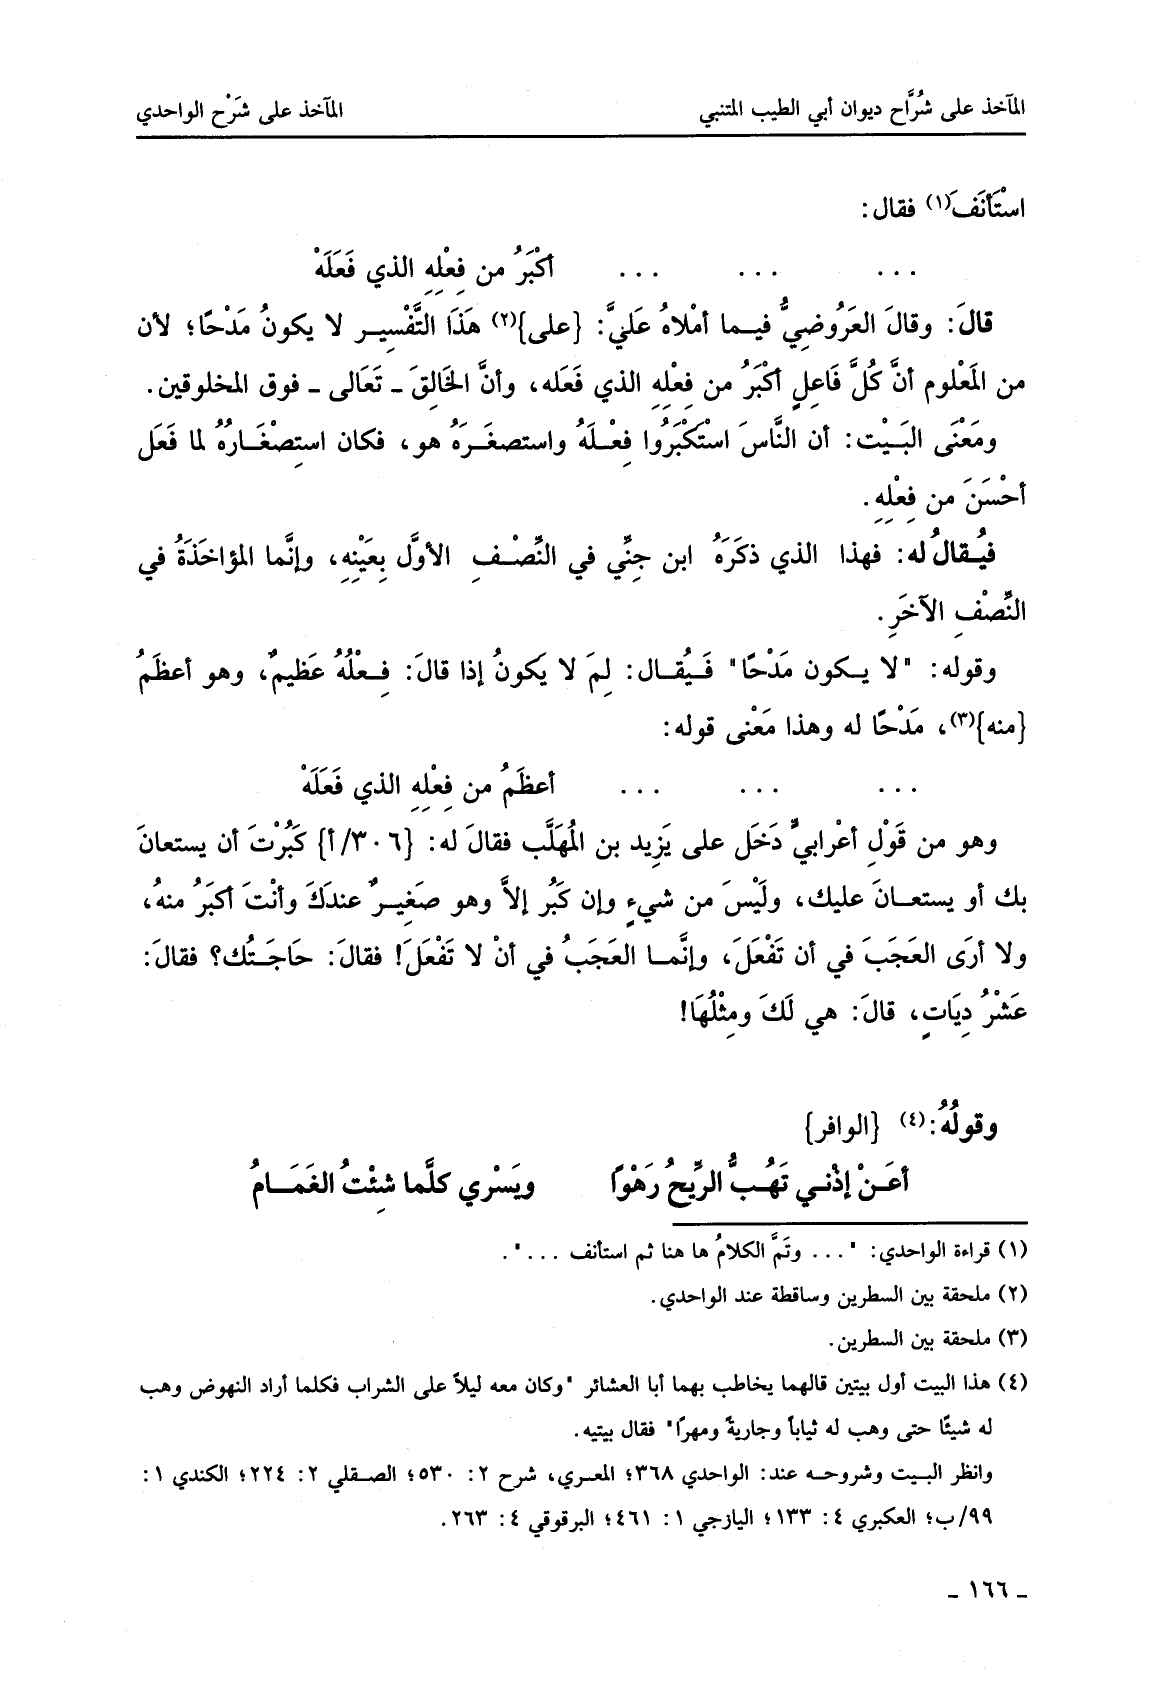 المآخذ على شُرَّاح ديوان أبي الطيب المتنبي المآخذ على شَرْح الواحدي
اسْتَأنَفَ(١) فقال:
... ... ... أكْبَرُ من فِعْلِهِ الذي فَعَلَهْ
قالَ: وقالَ العَرُوضِيُّ فيما أمْلاهُ عَليَّ: {على}(٢) هَذَا التَّفْسِير لا يكونُ مَدْحًا؛ لأن
من المَعْلوم أنَّ كُلَّ فَاعِلٍ أكْبَرُ من فِعْلِهِ الذي فَعَله، وأنَّ الخَالِقَ ـ تَعَالى ـ فوق المخلوقين.
ومَعْنَى البَيْت: أن النَّاسَ اسْتَكْبَرُوا فِعْلَهُ واستصغَرَهُ هو، فكان استِصْغَارُهُ لما فَعَل
أحْسَنَ من فِعْلِهِ.
فيُقالُ له: فهذا الذي ذكَرَهُ ابن جِنِّي في النِّصْفِ الأوَّل بِعَيْنِهِ، وإنَّما المؤاخَذَةُ في
النِّصْفِ الآخَرِ.
وقوله: "لا يكون مَدْحًا" فَيُقال: لِمَ لا يَكونُ إذا قالَ: فِعْلُهُ عَظيمٌ، وهو أعظَمُ
{منه}(٣)، مَدْحًا له وهذا مَعْنى قوله:
... ... ... أعظَمُ من فِعْلِهِ الذي فَعَلَهْ
وهو من قَوْلِ أعْرابيٍّ دَخَل على يَزِيد بن المُهَلَّب فقالَ له: {٣٠٦/أ} كَبُرْتَ أن يستعانَ
بك أو يستعانَ عليك، ولَيْسَ من شيءٍ وإن كَبُر إلاَّ وهو صَغِيرٌ عندكَ وأنْتَ أكبَرُ منهُ،
ولا أرَى العَجَبَ في أن تَفْعَلَ، وإنَّما العَجَبُ في أنْ لا تَفْعَلَ! فقالَ: حَاجَتُك؟ فقالَ:
عَشْرُ دِيَاتٍ، قالَ: هي لَكَ ومِثْلُهَا!
وقولُهُ:(٤) {الوافر}
أعَنْ إذْني تَهُبُّ الرِّيحُ رَهْوًا ويَسْري كلَّما شِئْتُ الغَمَامُ
(١) قراءة الواحدي: "... وتَمَّ الكلامُ ها هنا ثم استأنف ...".
(٢) ملحقة بين السطرين وساقطة عند الواحدي.
(٣) ملحقة بين السطرين.
(٤) هذا البيت أول بيتين قالهما يخاطب بهما أبا العشائر "وكان معه ليلاً على الشراب فكلما أراد النهوض وهب
له شيئًا حتى وهب له ثياباً وجاريةً ومهرًا" فقال بيتيه.
وانظر البيت وشروحه عند: الواحدي ٣٦٨؛ المعري، شرح ٢: ٥٣٠؛ الصقلي ٢: ٢٢٤؛ الكندي ١:
٩٩/ب؛ العكبري ٤: ١٣٣؛ اليازجي ١: ٤٦١؛ البرقوقي ٤: ٢٦٣.
ـ ١٦٦ ـ